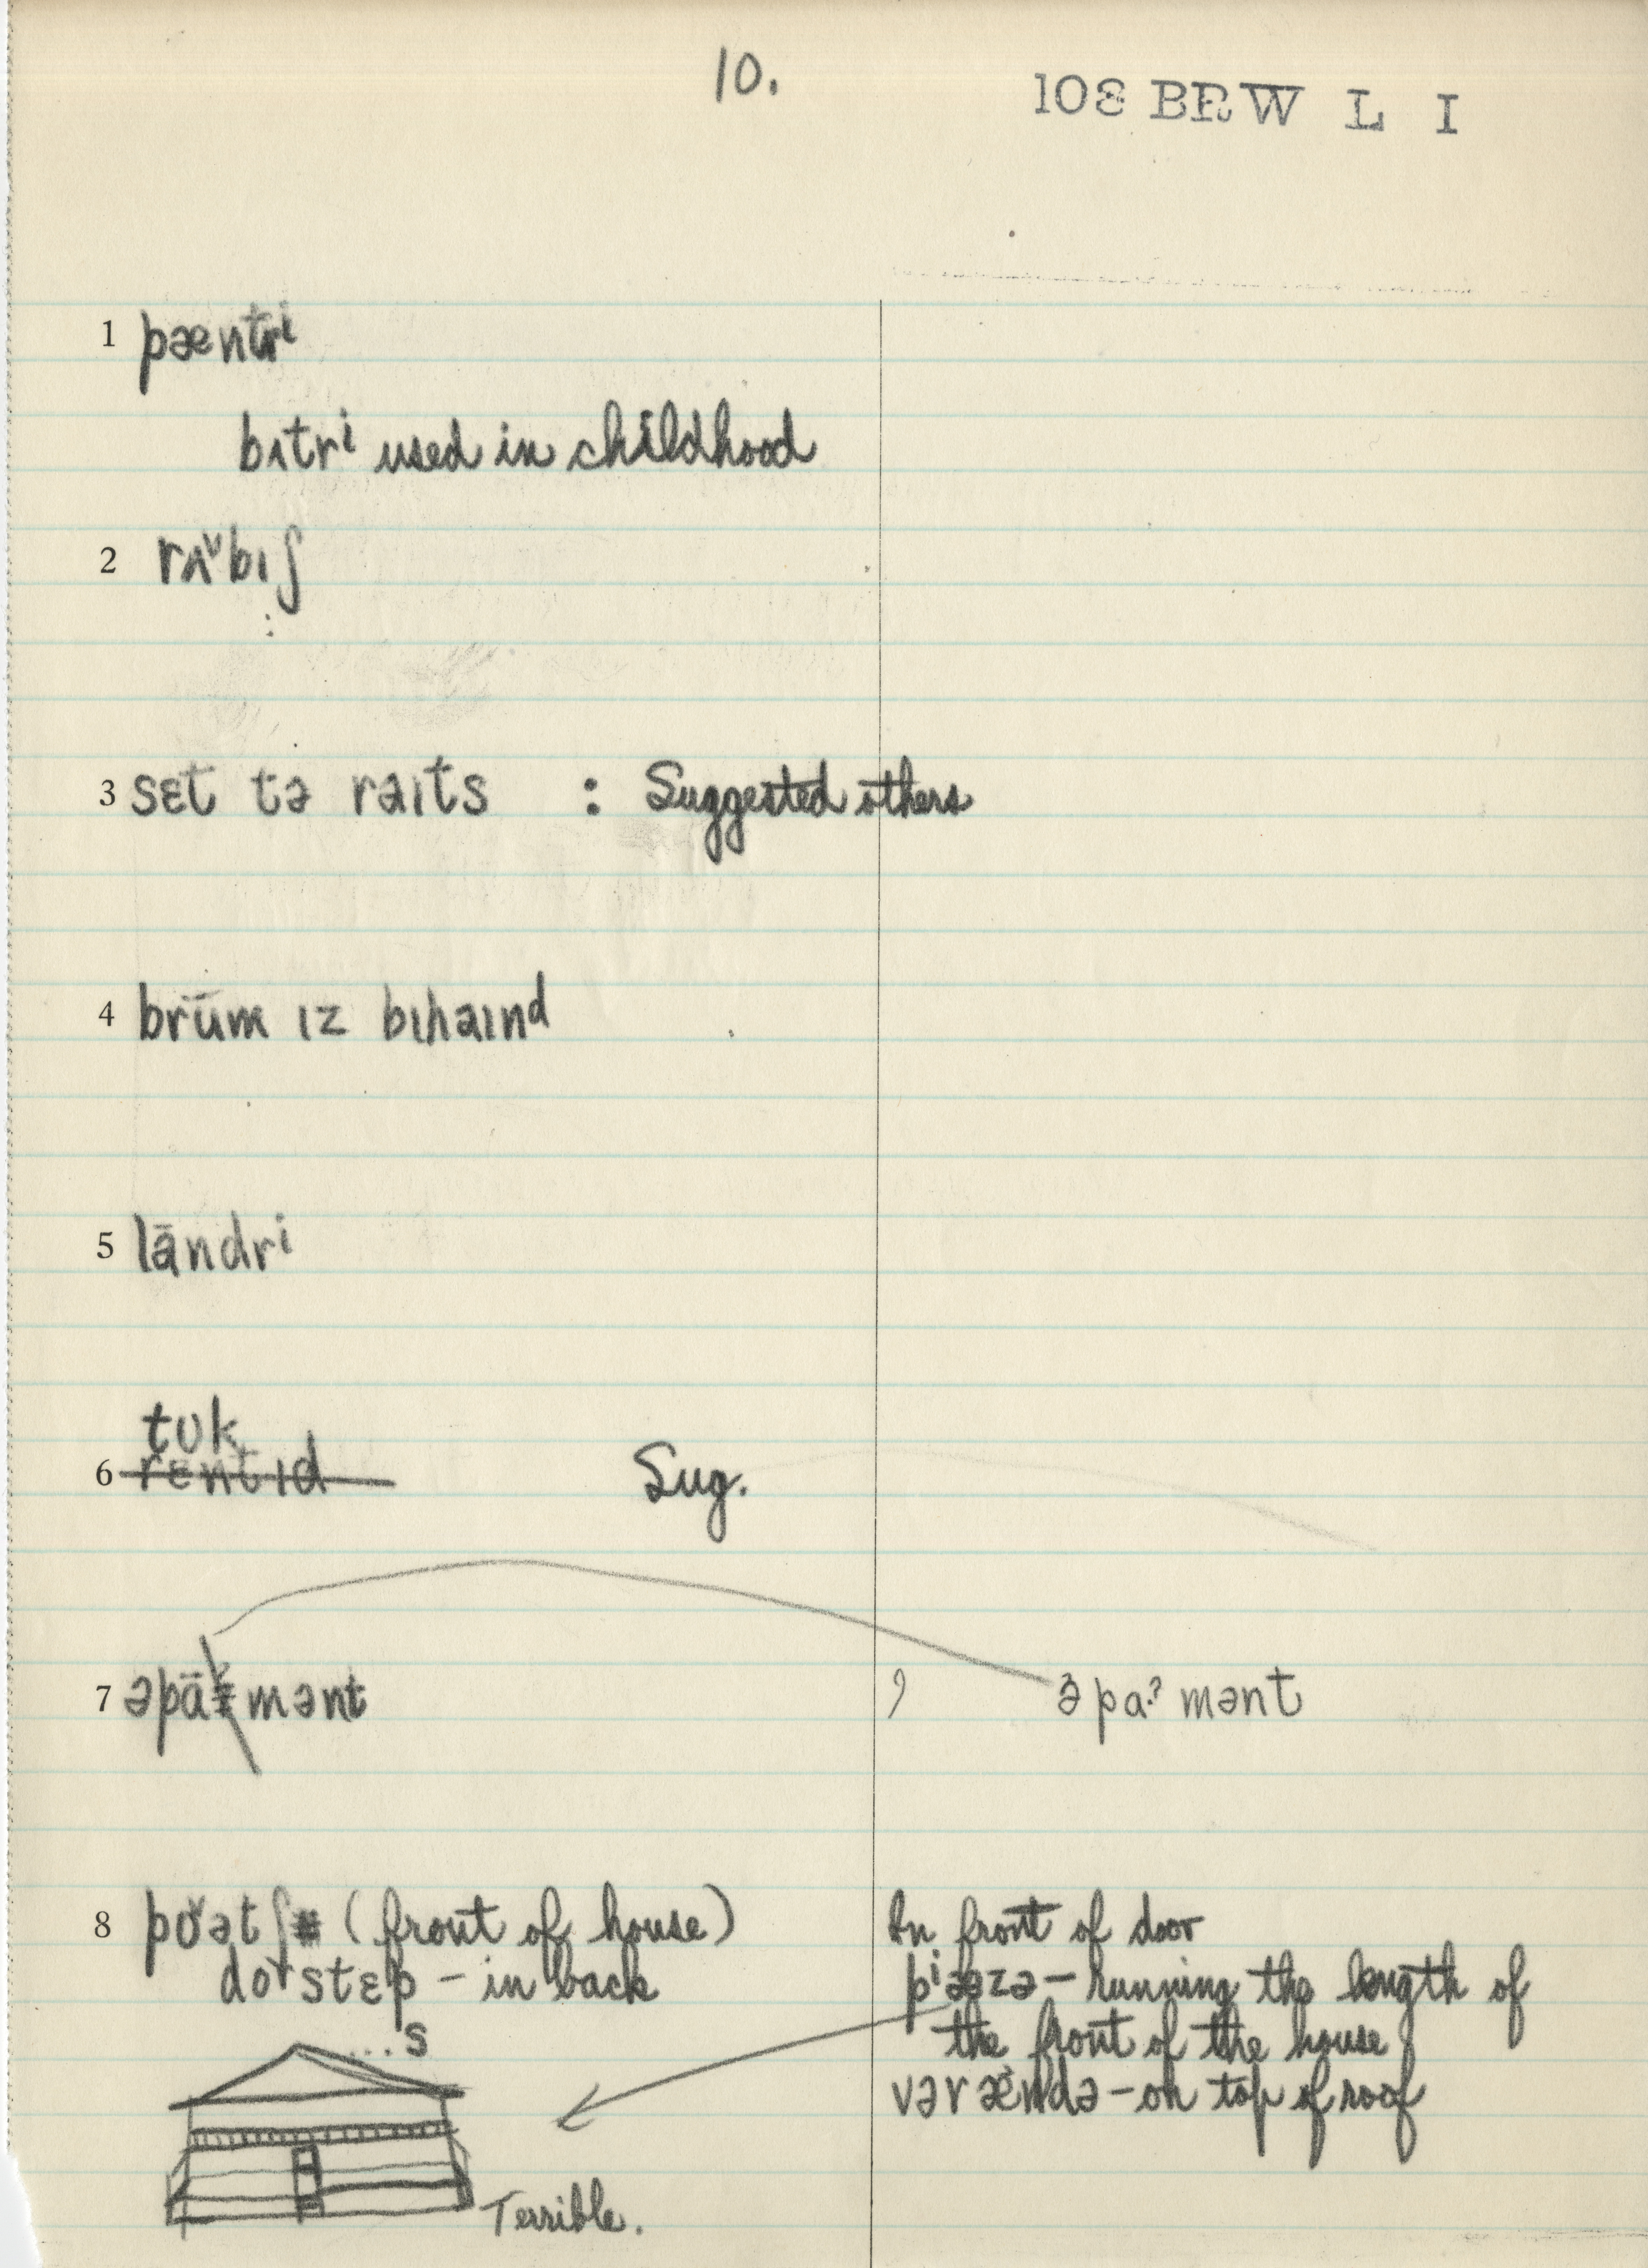 10.
108 BRW L I
1 pæntrⁱ
bɪtrⁱ used in childhood
2 rʌ̌bɪʃ
3 sɛt tə raɪts : Suggested others
4 brūm ɪz bɪhaɪnd
5 lāndrⁱ
tʊk
6 rɛntɪd Sug.
7 əpā mənt ə̂ pa.ˀ mənt
8 pʊ̌ətʃ (front of house)
In front of door
dorstɛp - in back
...s
pⁱazə - running the length of
the front of the house
vərændə - on top of roof
Terrible.